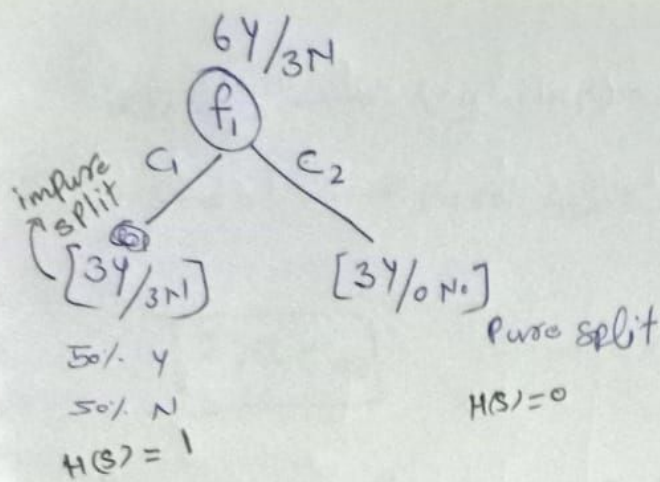 6Y/3N
f1
C1
C2
impure
split
[3Y/3N]
[3Y/0 No.]
Pure split
50%. Y
50%. N
H(S) = 1
H(S) = 0